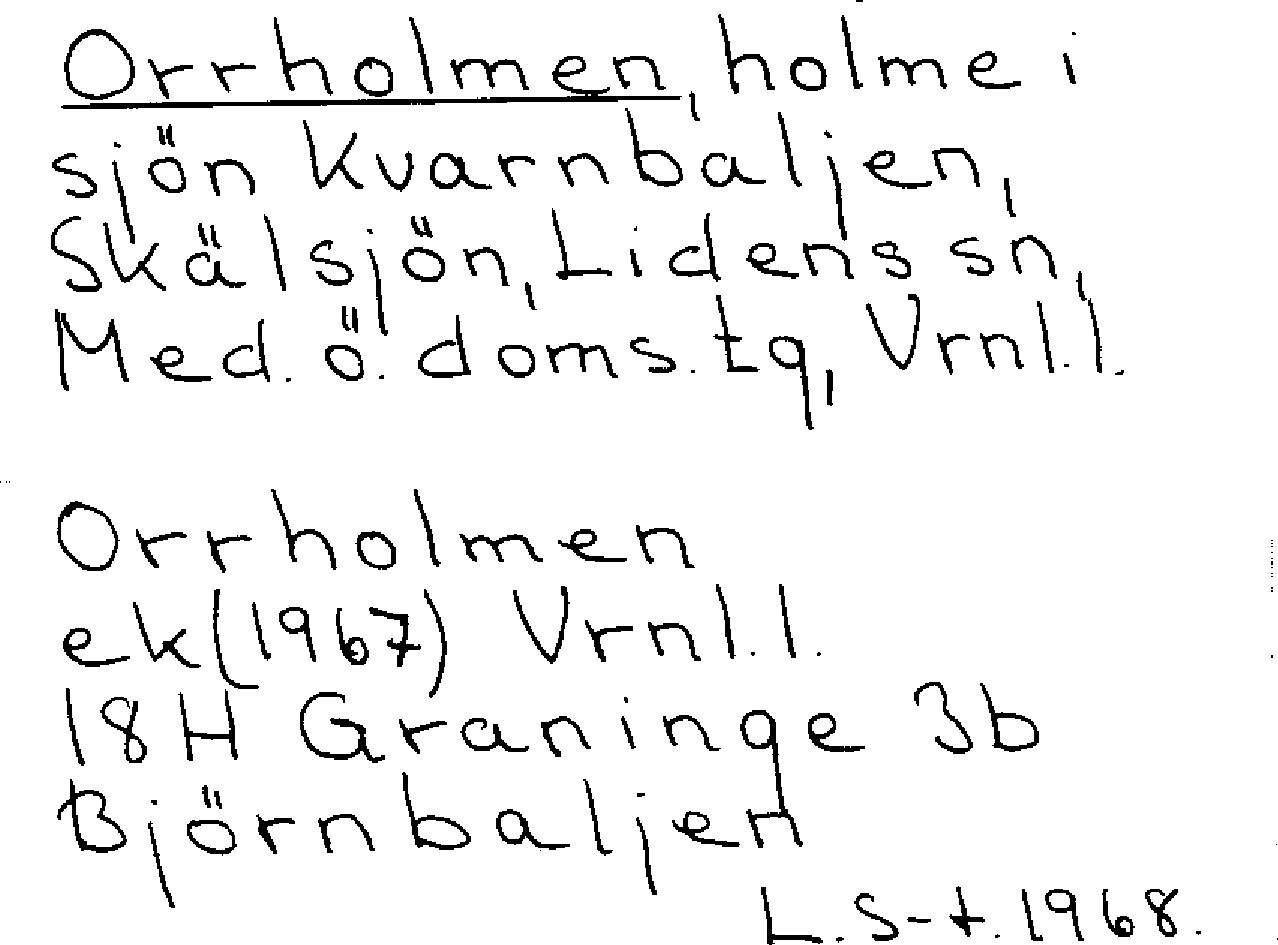 Orrholmen, holme i
sjön Kvarnbaljen,
Skälsjön, Lidens sn,
Med. ö. doms. tg, Vrnl. l.
Orrholmen
ek (1967) Vrnl. l.
18H Graninge 3b
Björnbaljen
L. S-t. 1968.